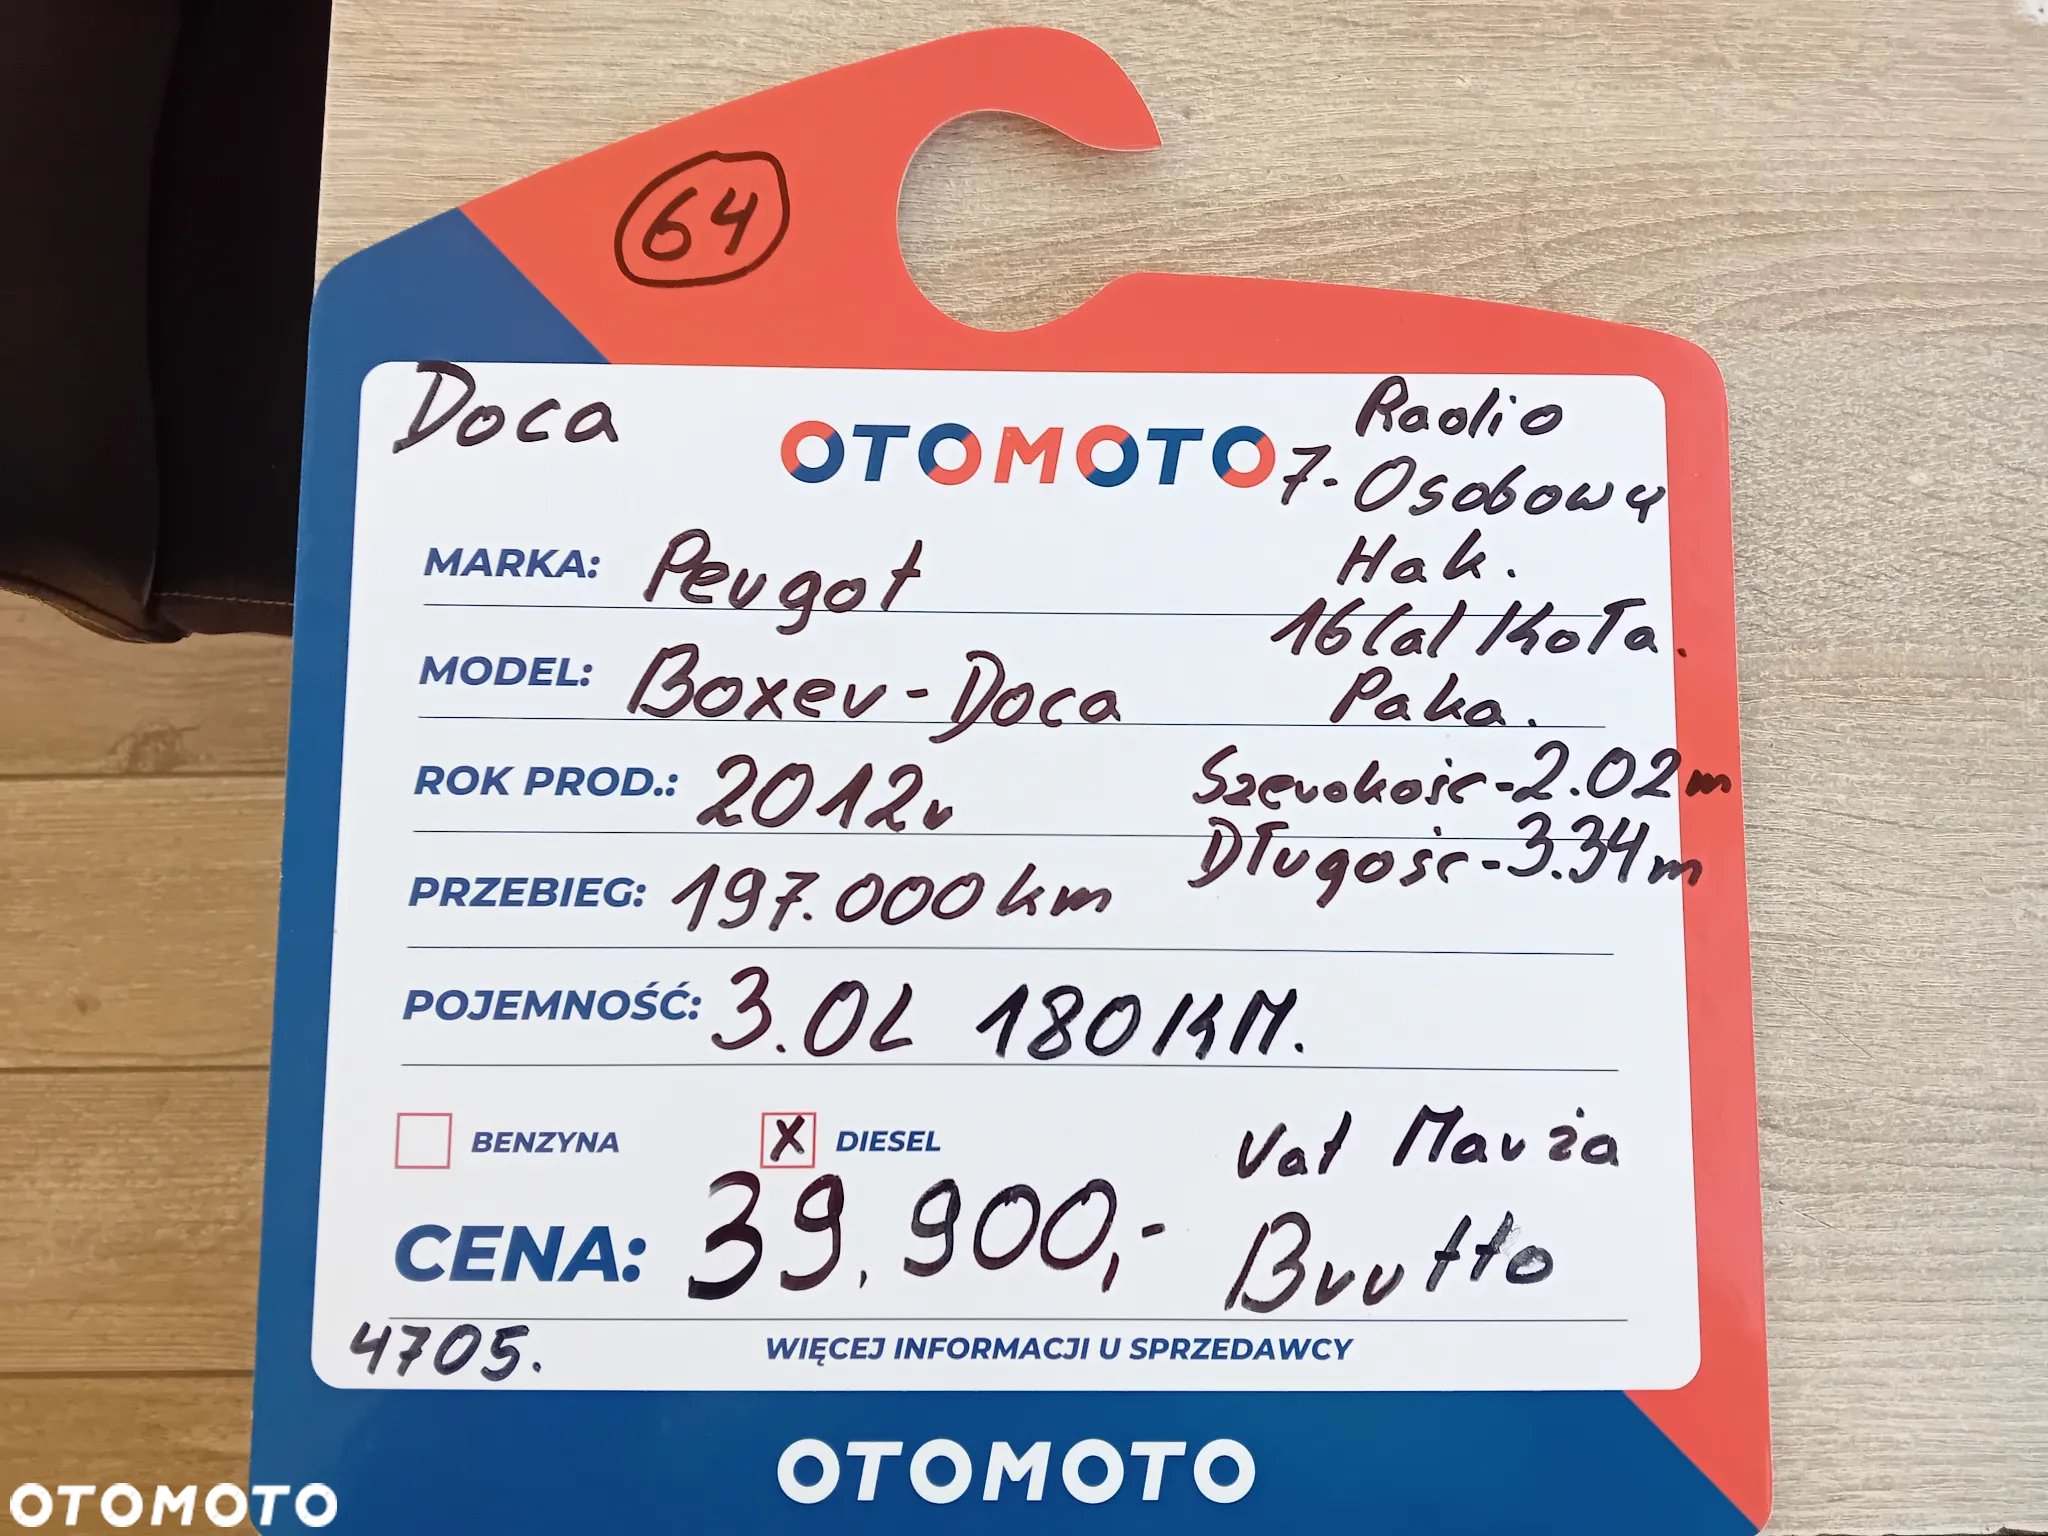 64
Doca
OTOMOTO
Radio
7-Osobowy
Hak.
16 Cal Koła.
Paka.
Szerokość - 2.02m
Długość - 3.34m
MARKA: Peugot
MODEL: Boxer - Doca
ROK PROD.: 2012r
PRZEBIEG: 197.000 km
POJEMNOŚĆ: 3.0L 180KM.
BENZYNA X DIESEL
Vat Marża
CENA: 39.900,- Brutto
4705.
WIĘCEJ INFORMACJI U SPRZEDAWCY
OTOMOTO
OTOMOTO